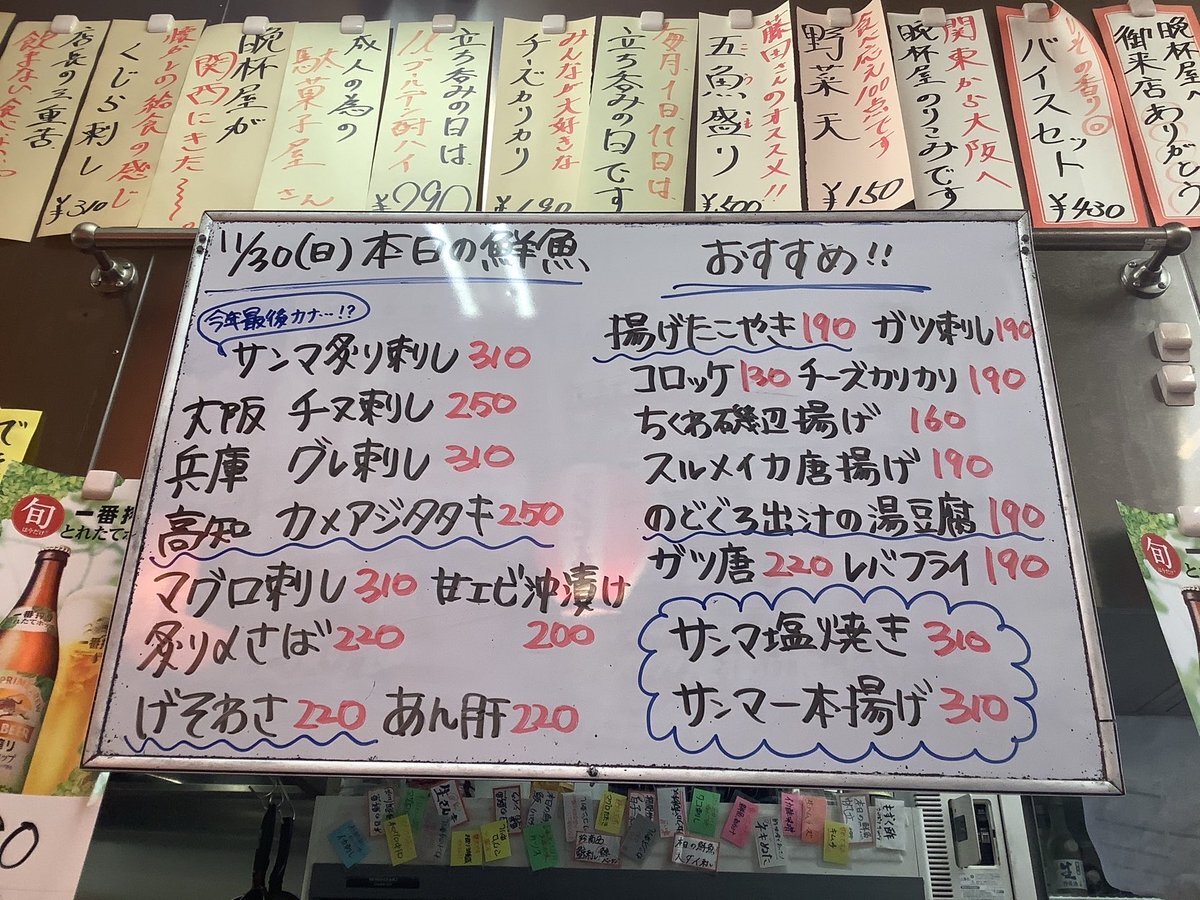 晩杯屋へ
御来店ありがとう
りその香り◎
バイスセット
¥430
関東から大阪へ
晩杯屋のりこみです
食べ応え100点です
野菜天
¥150
藤田さんのオススメ!!
五魚盛り
¥500
毎月1日、11日は
立ち呑みの日です
みんな大好きな
チーズカリカリ
¥190
立ち呑みの日は
ハブルテン酎ハイ
¥290
成人の為の
駄菓子屋さん
晩杯屋が
関西にきた〜
懐かしの給食の感じ
くじら刺し
¥310
店長の三重苦
11/30(日)本日の鮮魚
今年最後カナ…!?
サンマ炙り刺し 310
大阪 チヌ刺し 250
兵庫 グレ刺し 310
高知 カメアジタタキ 250
マグロ刺し 310 甘エビ沖漬け 200
炙り〆さば 220
げそわさ 220 あん肝 220
おすすめ!!
揚げたこやき 190 ガツ刺し 190
コロッケ 130 チーズカリカリ 190
ちくわ磯辺揚げ 160
スルメイカ唐揚げ 190
のどぐろ出汁の湯豆腐 190
ガツ唐 220 レバフライ 190
サンマ塩焼き 310
サンマ一本揚げ 310
旬
は今だけ
一番搾
とれたてホ
旬